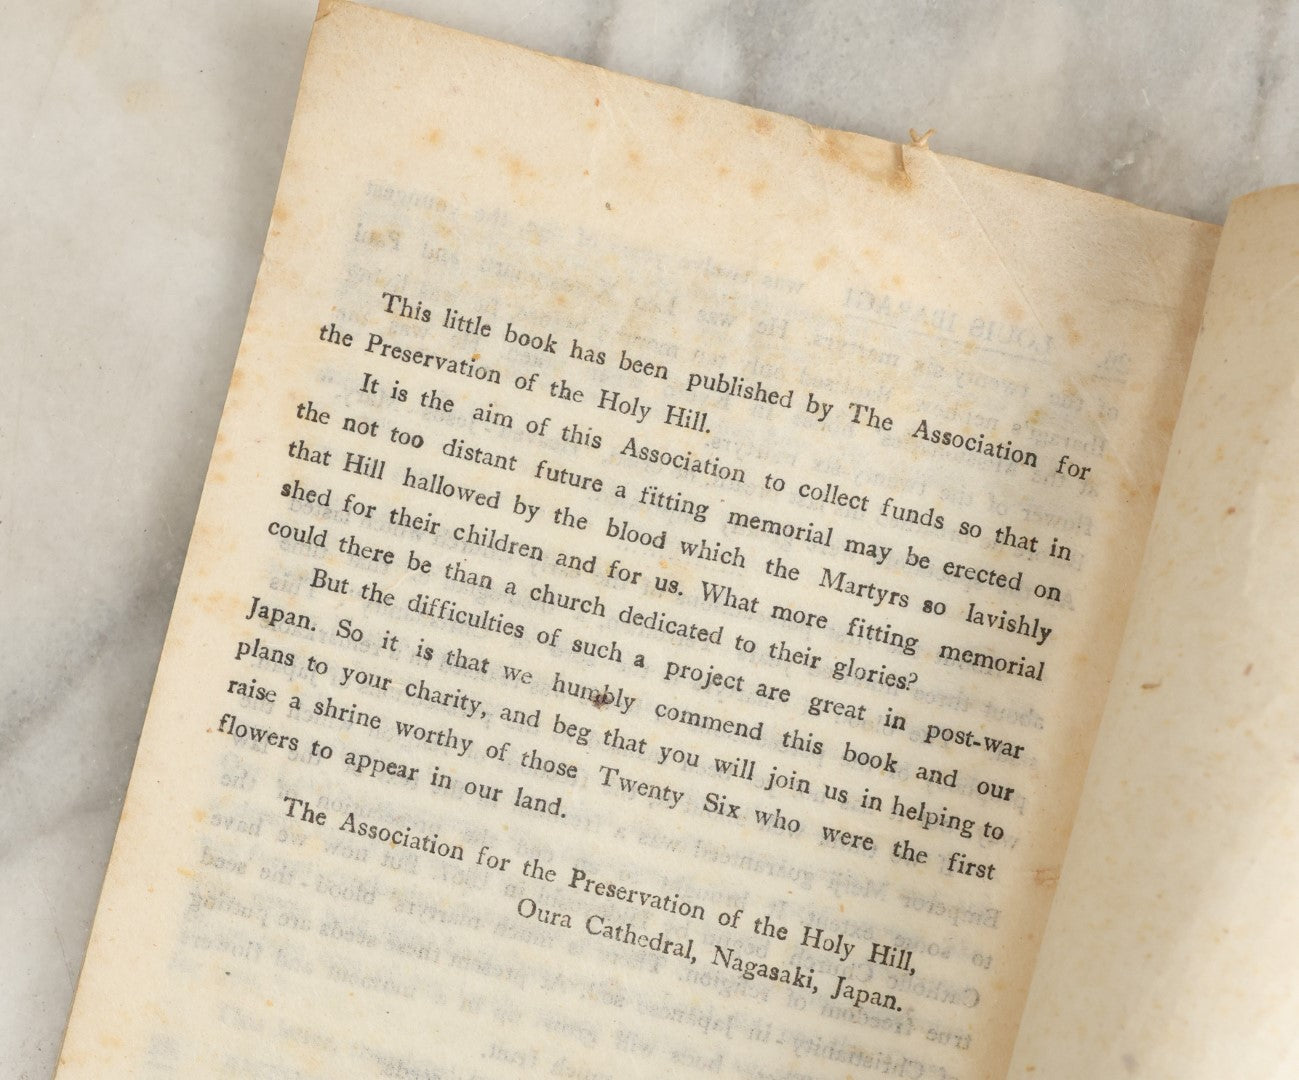 This little book has been published by The Association for
the Preservation of the Holy Hill.
It is the aim of this Association to collect funds so that in
the not too distant future a fitting memorial may be erected on
that Hill hallowed by the blood which the Martyrs so lavishly
shed for their children and for us. What more fitting memorial
could there be than a church dedicated to their glories?
But the difficulties of such a project are great in post-war
Japan. So it is that we humbly commend this book and our
plans to your charity, and beg that you will join us in helping to
raise a shrine worthy of those Twenty Six who were the first
flowers to appear in our land.
The Association for the Preservation of the Holy Hill,
Oura Cathedral, Nagasaki, Japan.